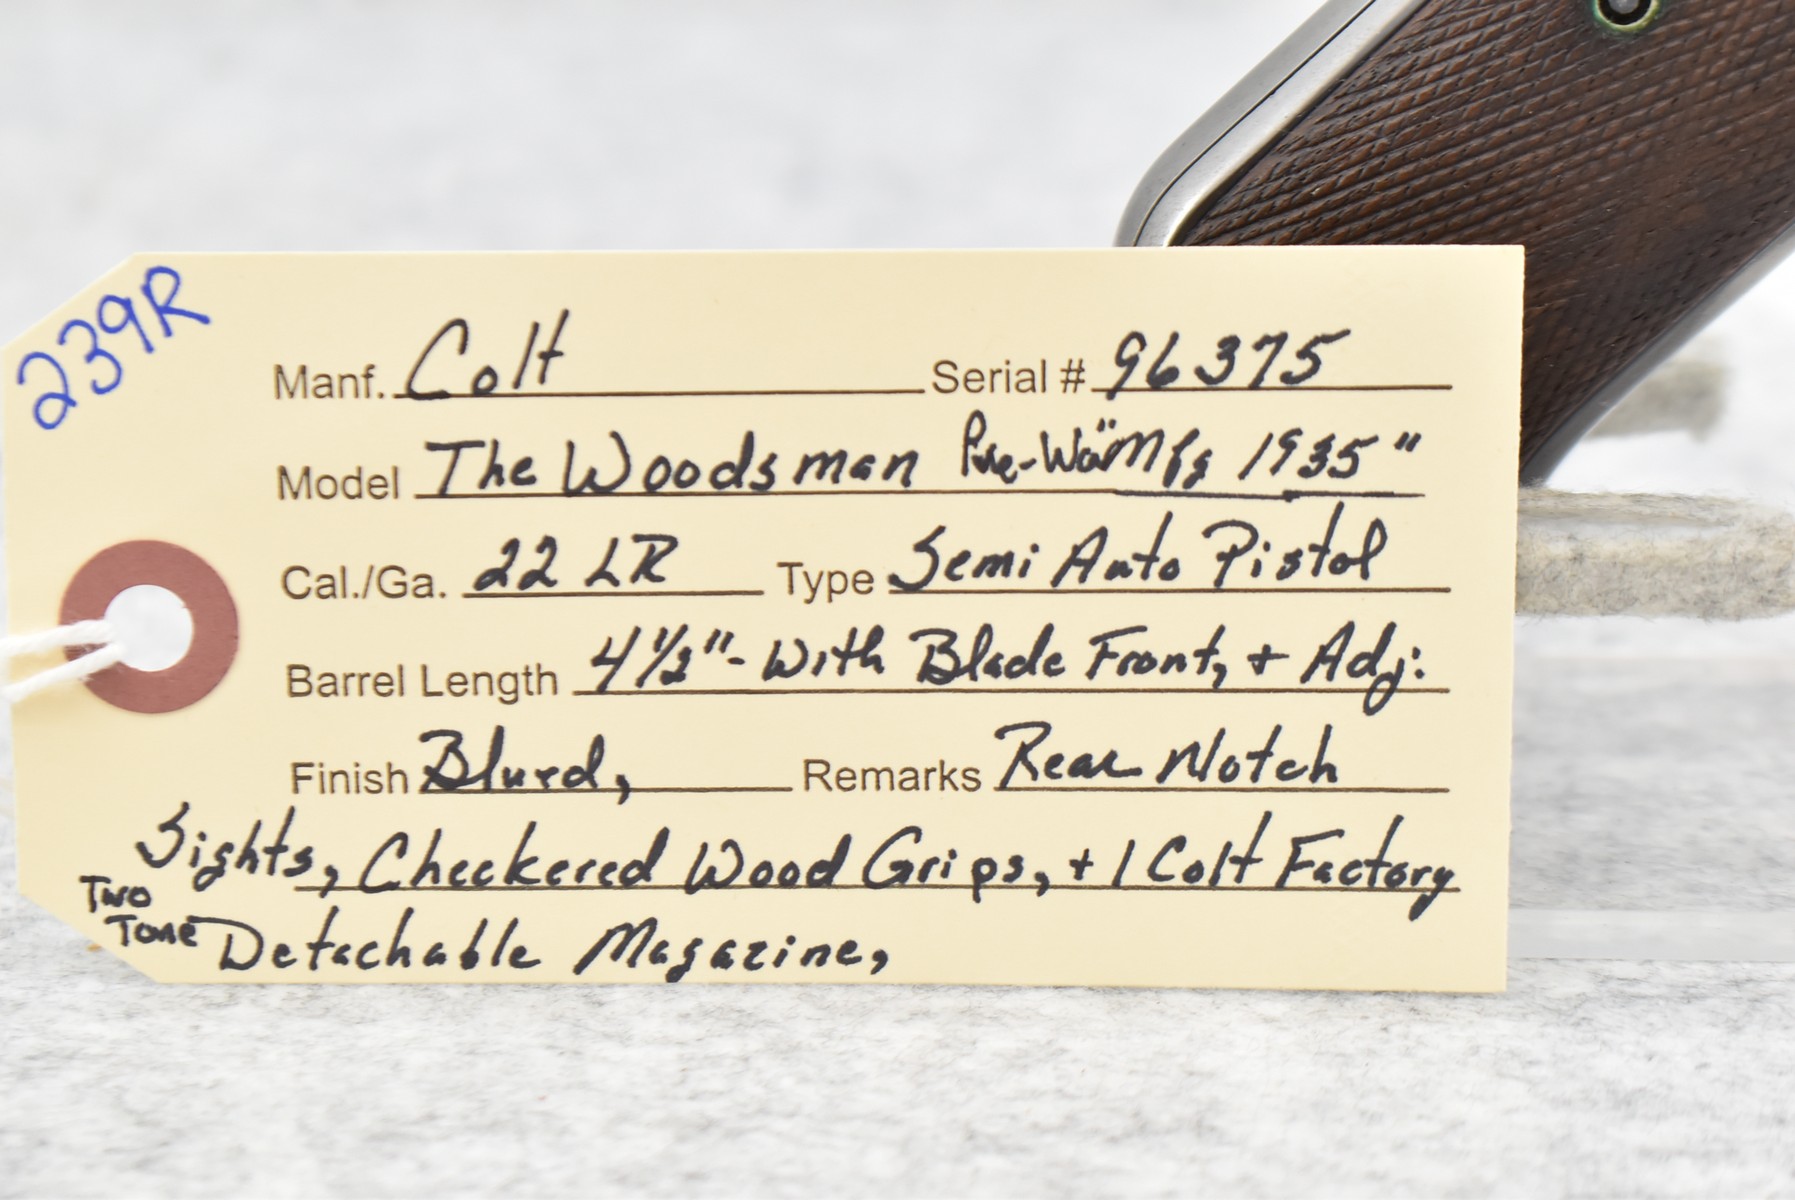 239R
Manf. Colt Serial # 96375
Model The Woodsman Pre-War "Mfg 1935"
Cal./Ga. 22 LR Type Semi Auto Pistol
Barrel Length 4 1/2" - With Blade Front, + Adj:
Finish Blued, Remarks Rear Notch
Sights, Checkered Wood Grips, + 1 Colt Factory
Two Tone Detachable Magazine,